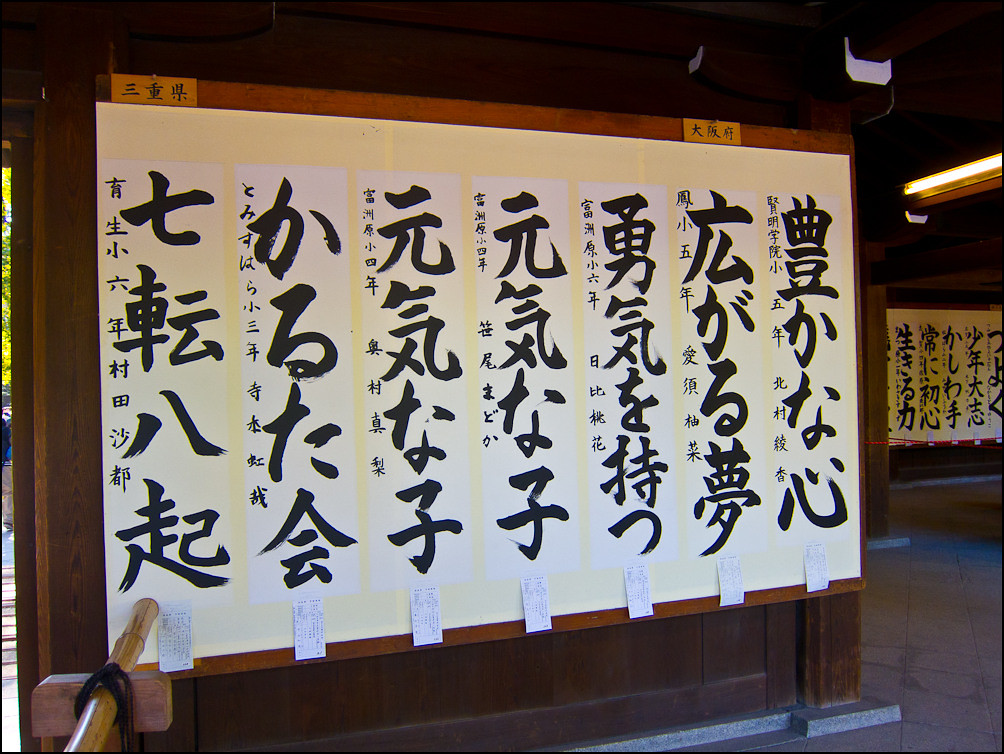 大阪府
豊かな心
賢明学院小 五年 北村綾香
広がる夢
鳳小五年 愛須柚菜
勇気を持つ
富洲原小六年 日比桃花
元気な子
富洲原小四年 笹尾まどか
元気な子
富洲原小四年 奥村真梨
三重県
かるた会
とみすはら小三年 寺本虹哉
七転八起
育生小六年 村田沙都
少年大志
かしわ手
常に初心
生きる力